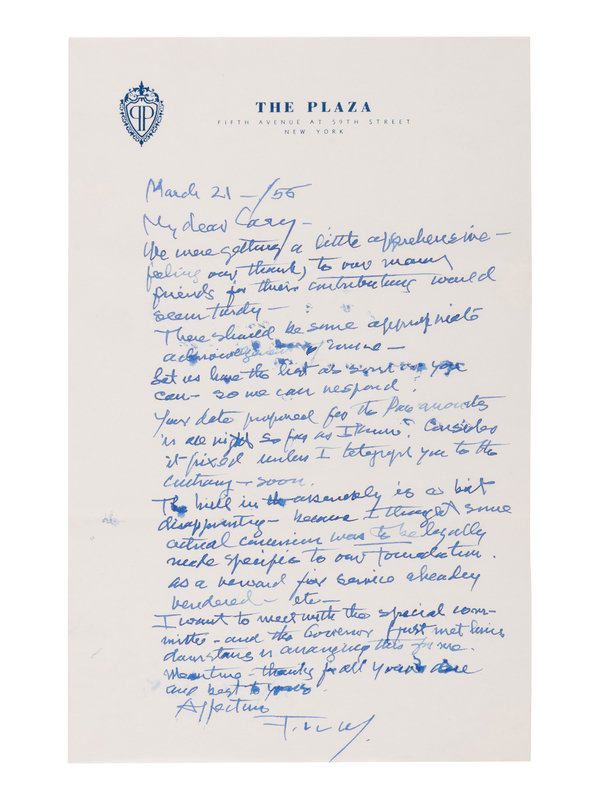 PP
THE PLAZA
FIFTH AVENUE AT 59TH STREET
NEW YORK
March 21 – /56
My dear Cary –
We were getting a little apprehensive –
feeling our thanks to our many
friends for their contributing would
seem tardy –
There should be some appropriate
of mine –
Let us have the list as soon as you
can – so we can respond.
Your date proposed for the
is all right so far as I know. Consider
it fixed unless I telegraph you to the
contrary – soon.
The bill in the assembly is a bit
disappointing – because I thought some
actual concession was to be legally
made specific to our Foundation.
as a reward for service already
rendered – etc –
I want to meet with the special com-
mittee – and the Governor (just met him
downstairs) is arranging this for me.
Meantime – thanks for all you've done
and best to yours.
Affection
F.Ll.W.